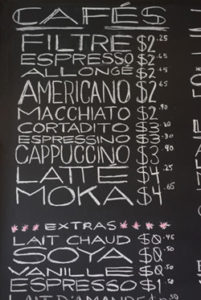 CAFÉS
FILTRE $2.25
ESPRESSO $2.45
ALLONGÉ $2.65
AMERICANO $2.90
MACCHIATO $2.90
CORTADITO $3.10
ESPRESSINO $3.30
CAPPUCCINO $3.90
LATTE $4.25
MOKA $4.65
EXTRAS
LAIT CHAUD $0.45
SOYA $0.50
VANILLE $0.50
ESPRESSO $1.50
LAIT D'AMANDE